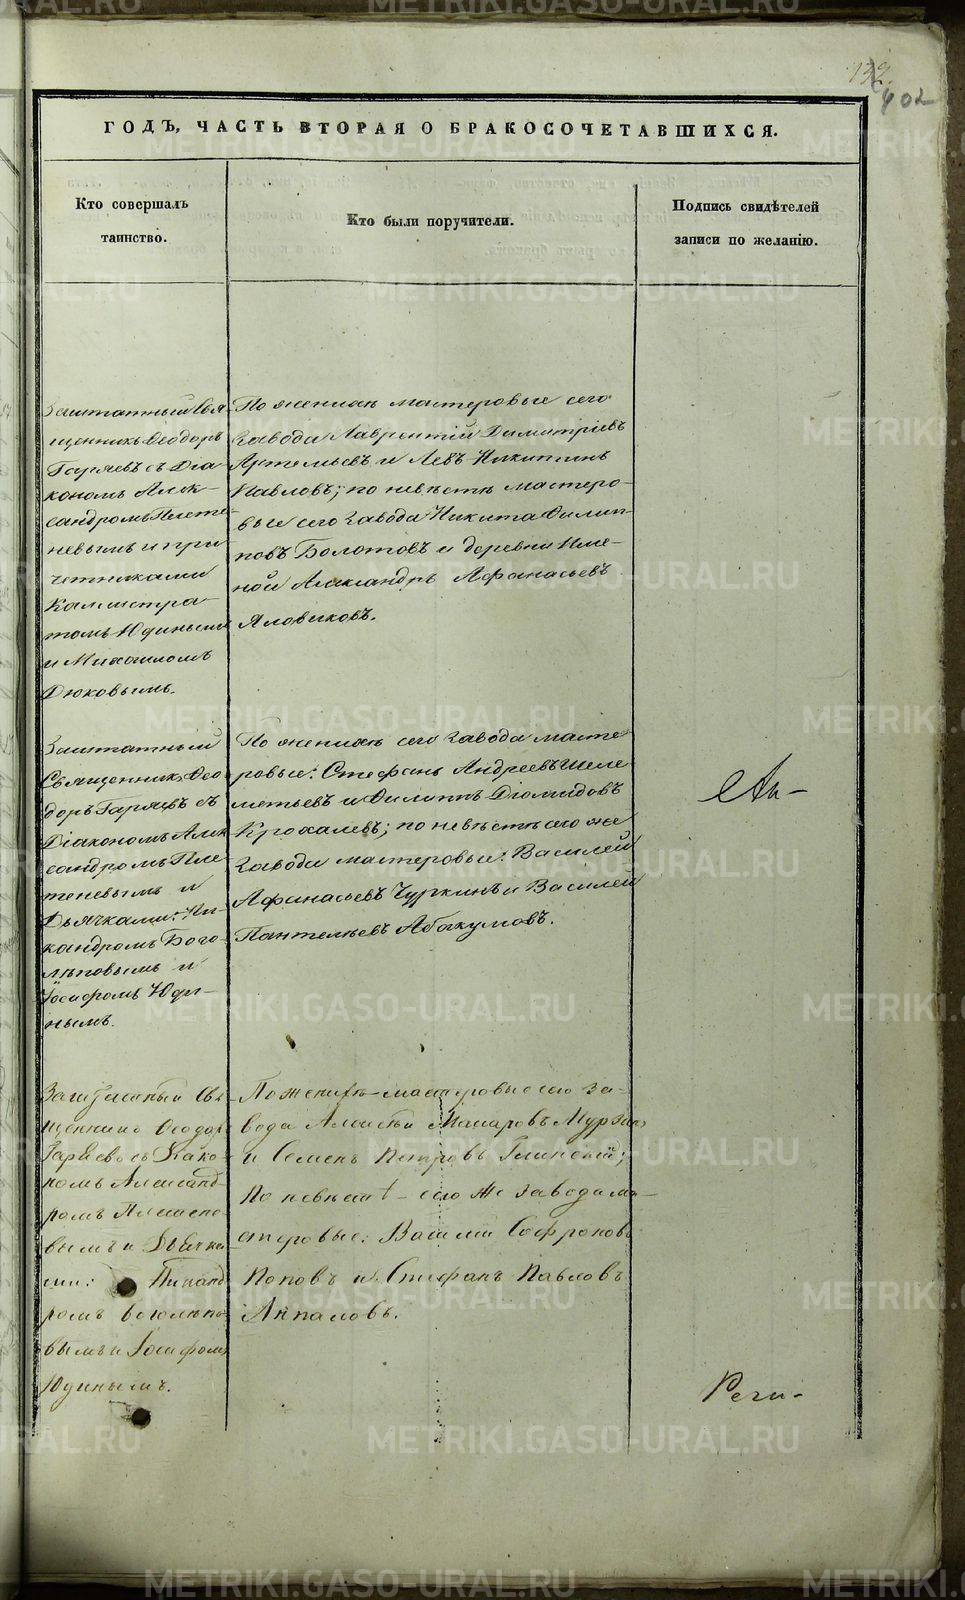 402
ГОДЪ, ЧАСТЬ ВТОРАЯ О БРАКОСОЧЕТАВШИХСЯ.
Кто совершалъ
таинство.
Кто были поручители.
Подпись свидѣтелей
записи по желанію.
Заштатный Свя-
щенникъ Ѳеодоръ
Гаряевъ съ Діа-
кономъ Алек-
сандромъ Плете-
невымъ и при
четниками
Каллистра-
томъ Юдинымъ
и Михаиломъ
Дюковымъ.
По женихѣ мастеровые сего
завода Лаврентій Димитріевъ
Артемьевъ и Левъ Никитинъ
Павловъ; по невѣстѣ мастеро-
вые сего завода Никита Филип-
повъ Болотовъ и деревни
Александръ Афанасьевъ
Яловиковъ.
Заштатный
Священникъ Ѳео
доръ Гаряевъ съ
Діакономъ Алек
сандромъ Пле
теневымъ и
Дьячками: Ни-
кандромъ Бого-
лѣповымъ и
Іосифомъ Юди-
нымъ.
По женихѣ сего завода масте-
ровые: Стефанъ Андреевъ Шеле
метьевъ и Филиппъ Діомидовъ
Крохалевъ; по невѣстѣ сего же
завода мастеровые: Василей
Афанасьевъ Чуркинъ и Василей
Пантелѣевъ Абакумовъ.
Заштатный Свя
щенникъ Ѳеодоръ
Гаряевъ съ Діако-
номъ Александ
ромъ Плетене
вымъ и Дьячка
ми: Никанд
ромъ Боголѣпо
вымъ и Іосифомъ
Юдинымъ.
По женихѣ мастеровые сего за-
вода Макаровъ Мурзинъ
и Семенъ Петровъ Глинской;
по невѣстѣ сего же завода ма-
стеровые: Василій Софроновъ
Поповъ и Стефанъ Павловъ
METRIKI.GASO-URAL.RU